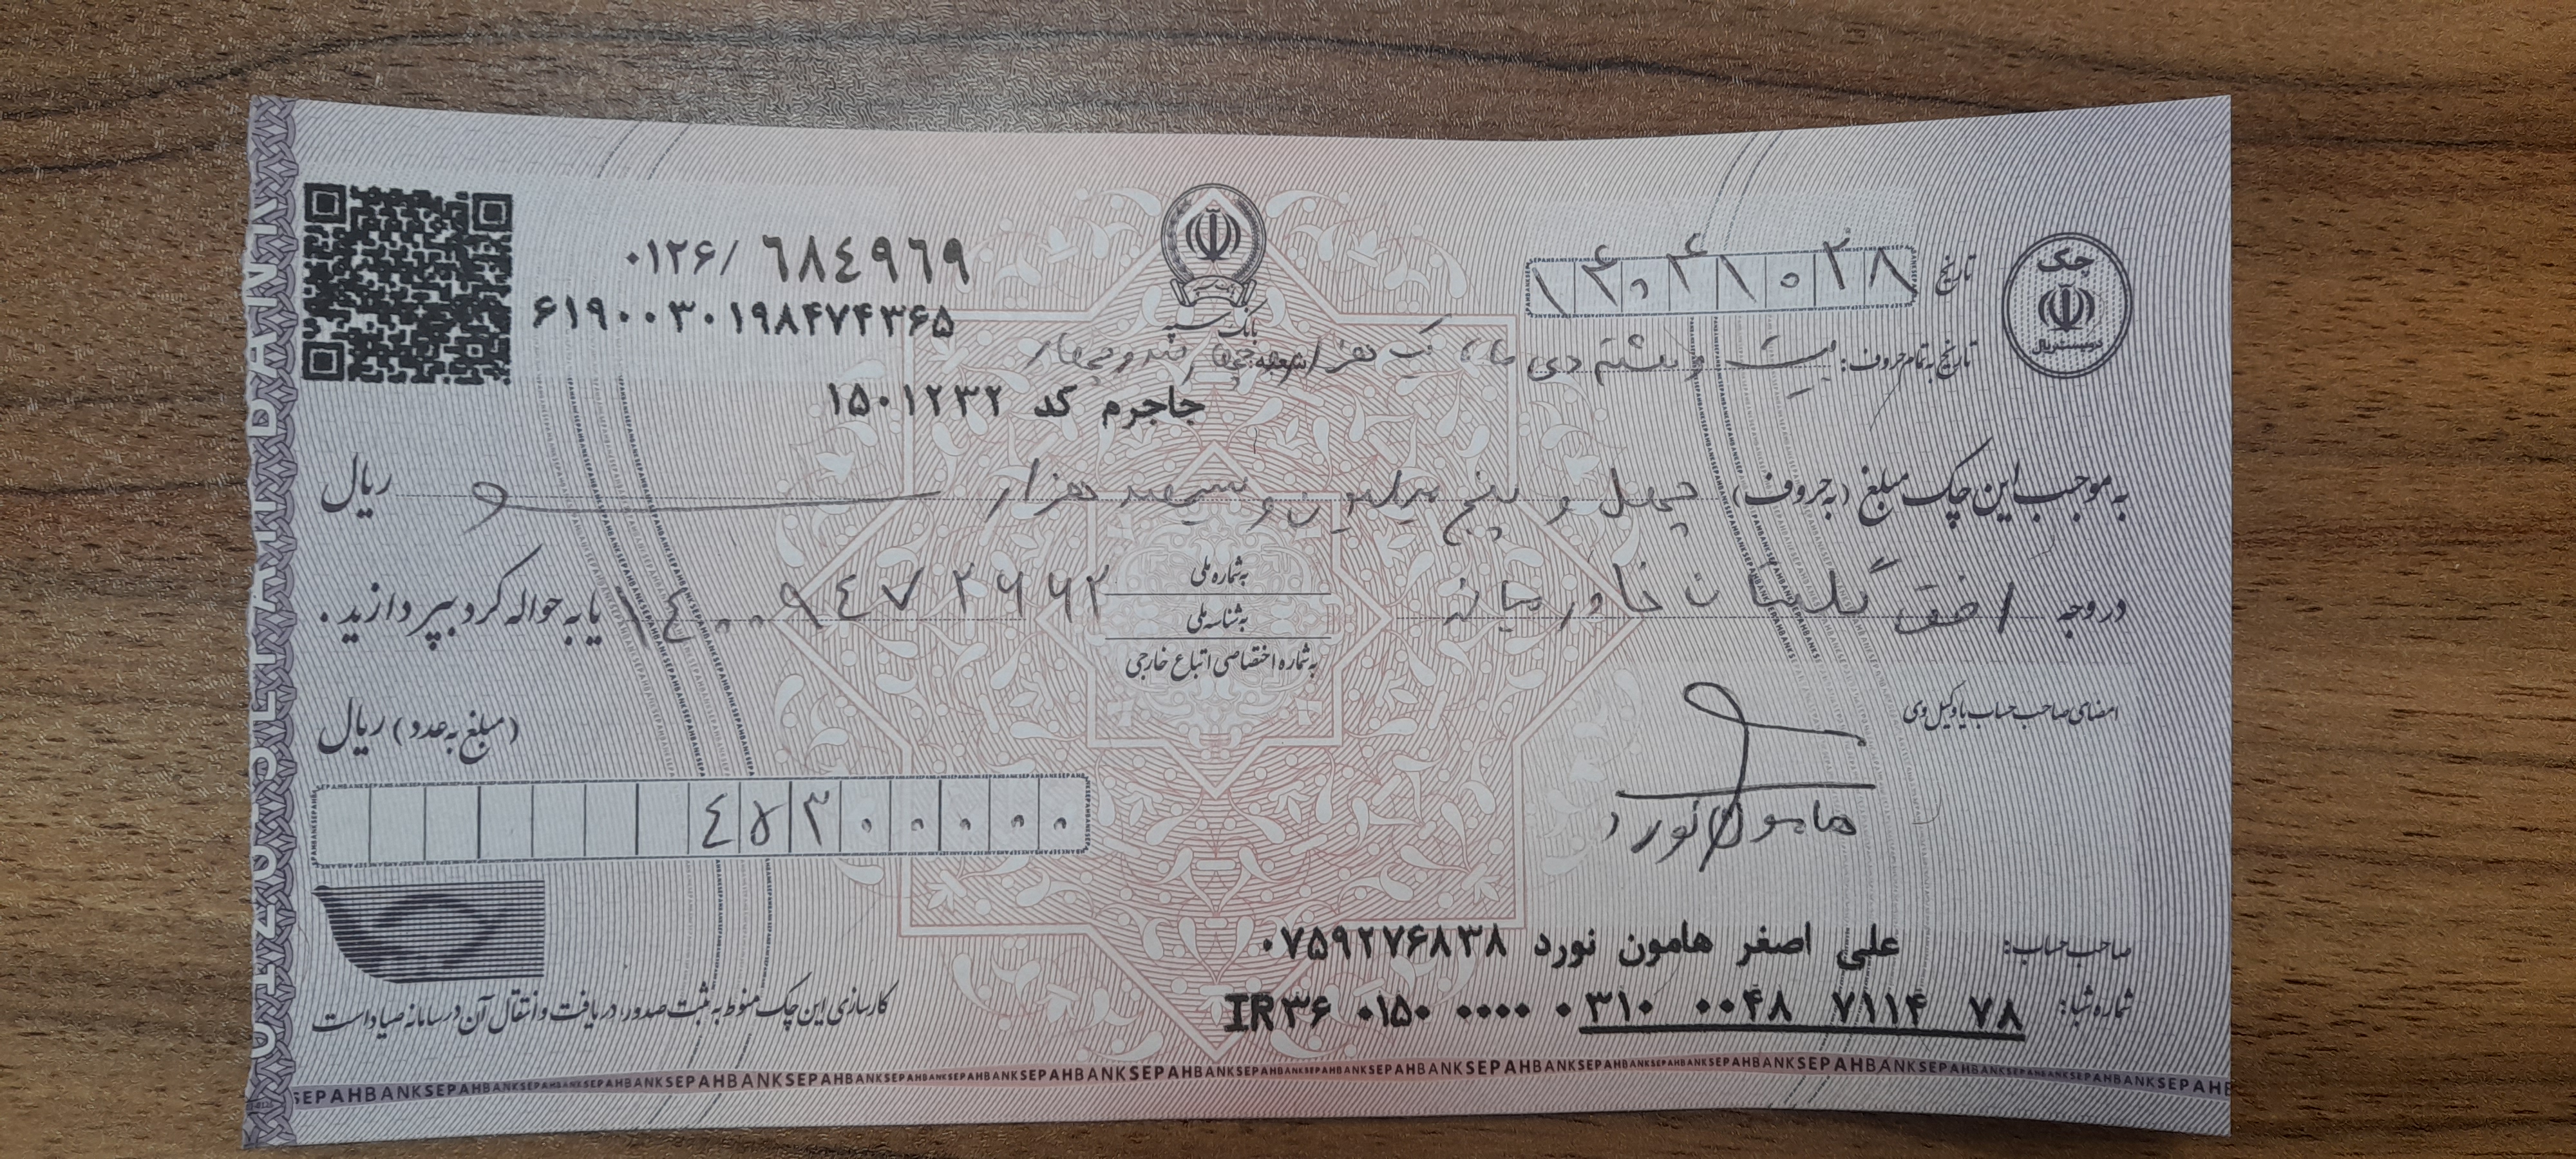 چک
تاریخ ۱۴۰۴۱۰۲۸
۰۱۲۶/ ٦٨٤٩٦٩
۶۱۹۰۰۳۰۱۹۸۴۷۴۳۶۵
بانک سپه
تاریخ به تمام حروف: بیست و هشتم دی ماه یک هزار و چهارصد و چهار
شعبه:
جاجرم کد ۱۵۰۱۲۳۲
به موجب این چک مبلغ (به حروف) چهل و پنج میلیون و سیصد هزار ریال
در وجه افق گلستان خاورمیانه
به شماره ملی
به شناسه ملی
به شماره اختصاصی اتباع خارجی
۱٤۰۰۹٤۷۲۶۶۲ یا به حواله کرد بپردازید.
امضای صاحب حساب یا وکیل وی
هامون نورد
(مبلغ به عدد) ریال
٤٥٣٠٠٠٠٠
صاحب حساب: علی اصغر هامون نورد ۰۷۵۹۲۷۶۸۳۸
شماره شبا: IR۳۶ ۰۱۵۰ ۰۰۰۰ ۰۳۱۰ ۰۰۴۸ ۷۱۱۴ ۷۸
کارسازی این چک منوط به ثبت صدور، دریافت و انتقال آن در سامانه صیاد است
SEPAHBANKSEPAHBANKSEPAHBANKSEPAHBANKSEPAHBANKSEPAHBANK